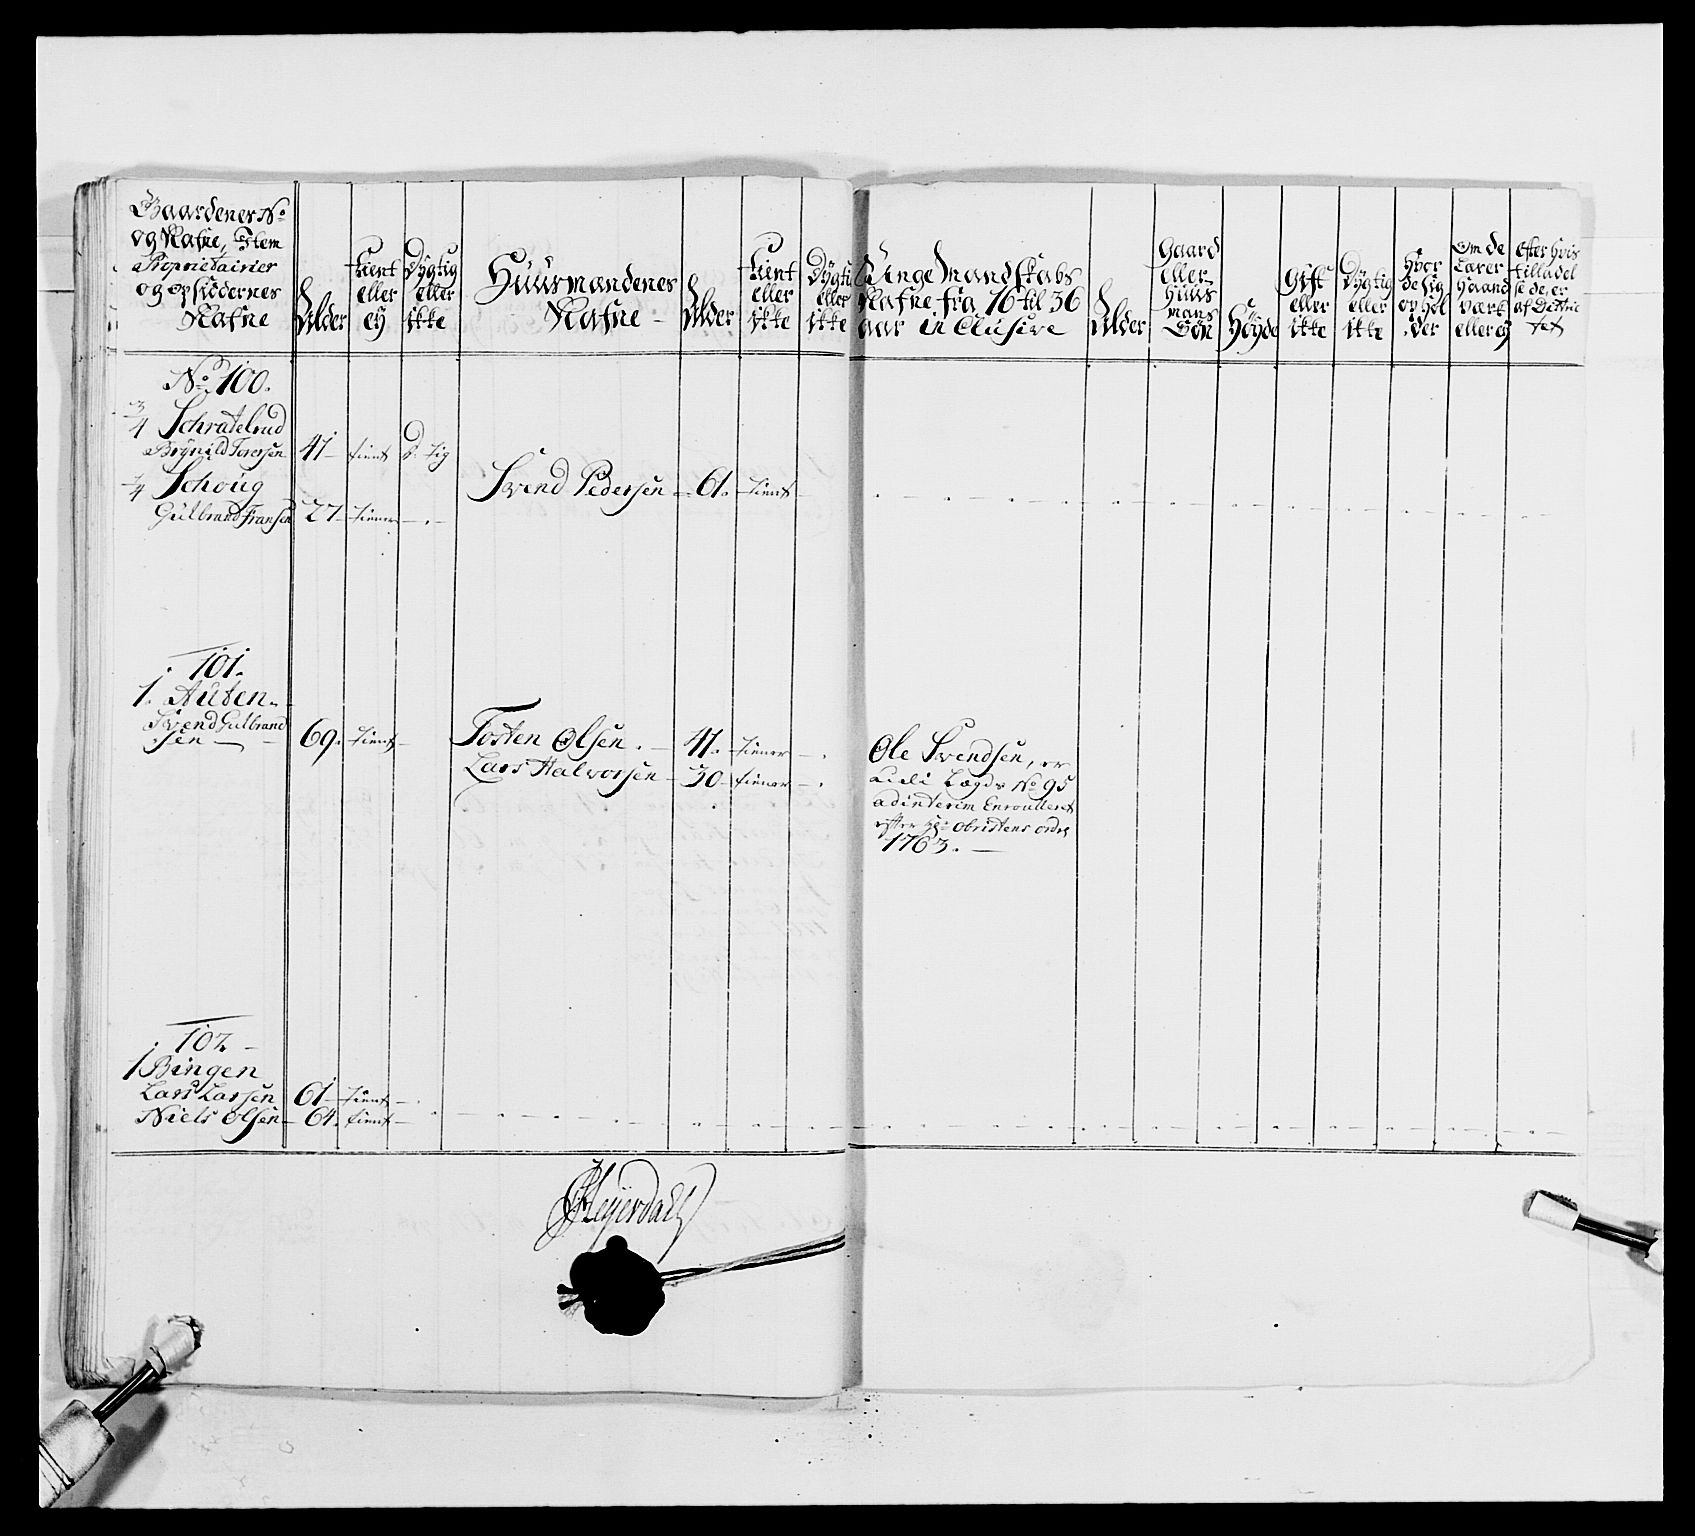 Gaardenes No
og Nafne, Item
Proprietairier
og opsiddernes
Nafne
Alder
tient
eller
ey
Dygtig
eller
ikke
Huusmandenes
Nafne
Alder
tient
eller
ikke
Dygti
eller
ikke
Unge Mandskabs
Nafne fra 16 til 36
aar inClusive
Alder
Gaard
eller
Huus
mans
Søn
Høyde
Gift
eller
ikke
Dygtig
eller
ikke
Hvor
de sig
ophol
der
Om de
Lærer
Haand
værk
eller ey
Efter hvis
tilladel
se de er
af Distric
tet
No 100.
3/4 Schratelrud
Brynild Torersen 41 tient d: tig
1/4 Schoug
Svend Pedersen 61. tient
Gulbrand Fransen 27 tiener
101.
1. Auten
Svend Gulbrand
sen 69. tient
Tosten Olsen. 41. tiener
Lars Halvorsen 30 tiener
Ole Svendsen, er
udi Lægds No 95
adinterim Enroulleret
efter Hr Obristens ordre
1763.
102
1 Bingen
Lars Larsen 61 tient
Niels Olsen 64. tient
Heyerdahl